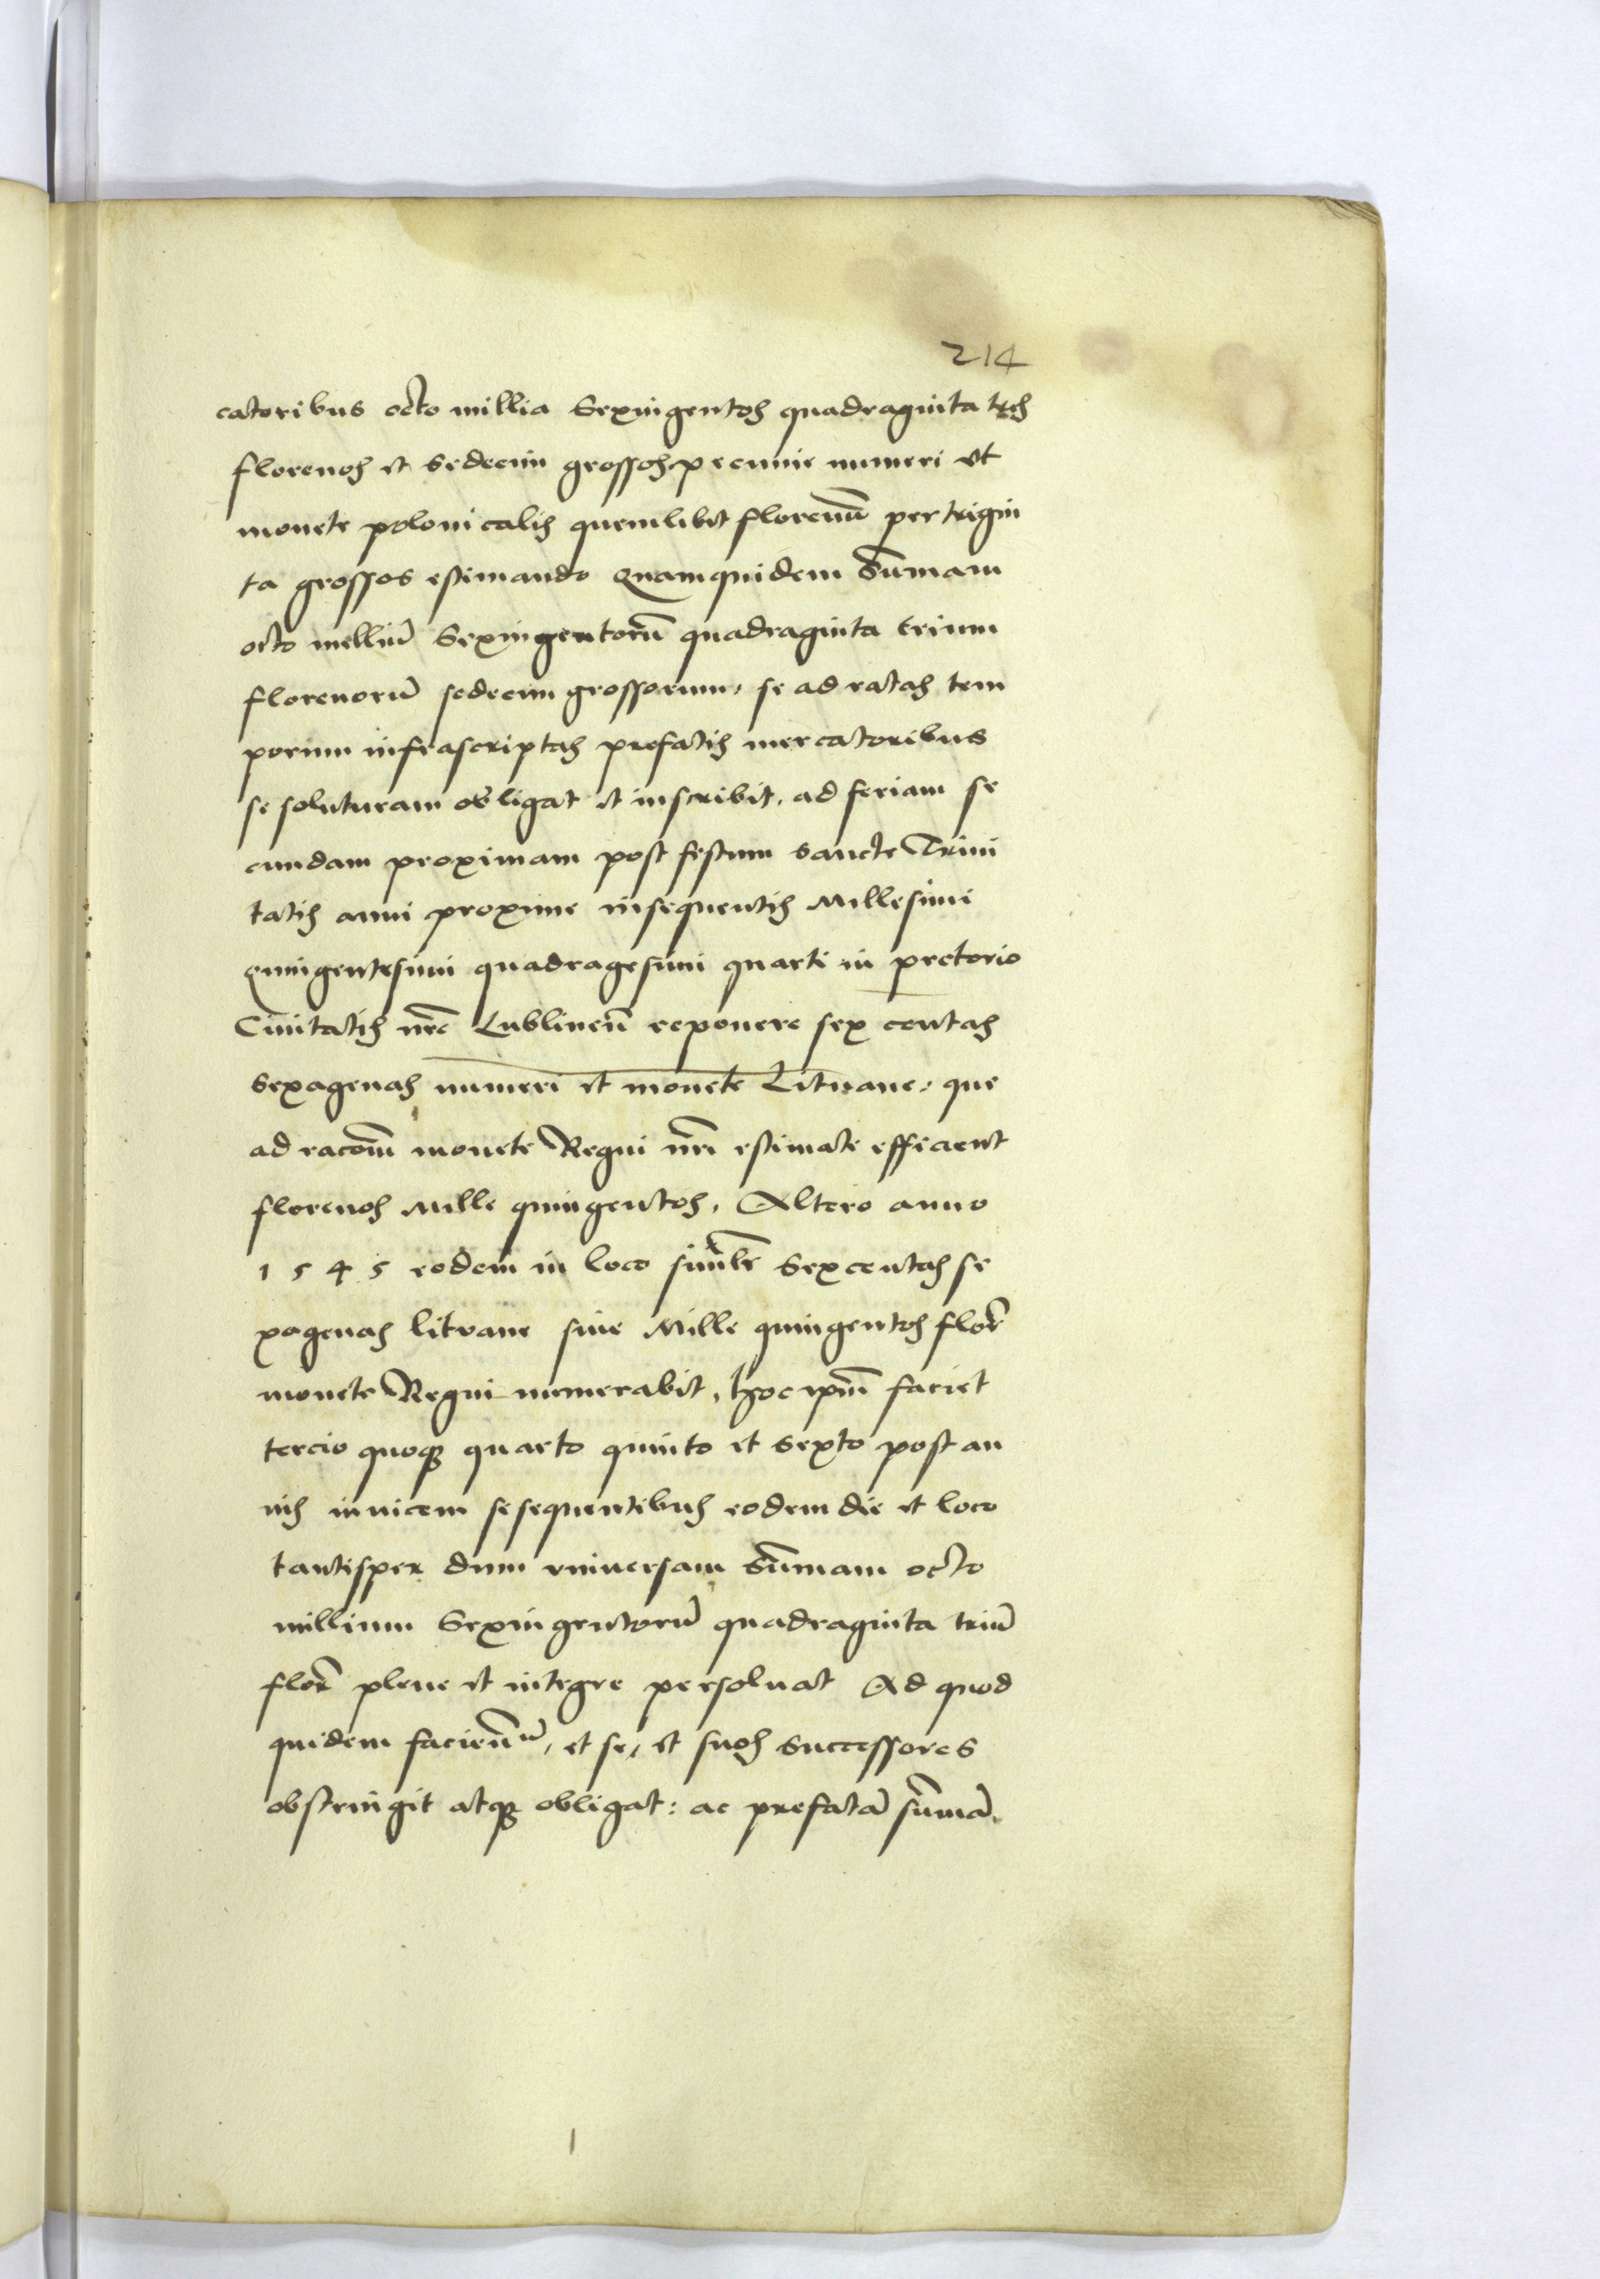 214
catoribus octo millia Sexingentos quadraginta tres
florenos et sedecim grossos pecunie numeri et
monete polonicalis quemlibet florenũ per trigin
ta grossos estimando Quamquidem Sũmam
octo milliũ Sexingentorũ quadraginta trium
florenorũ sedecim grossorum, se ad ratas tem
porum infrascriptas prefatis mercatoribus
se soluturam obligat et inscribit, ad feriam se
cundam proximam post festum sancte Trini
tatis anni proxime insequentis Millesimi
quingentesimi quadragesimi quarti in pretorio
Ciuitatis nr̃e Lublineñ reponere sex centas
sexagenas numeri et monete Lituane, que
ad racom̃ monete Regni nr̃i estimate efficient
florenos Mille quingentos, Altero anno
1545 eodem in loco simlr̃ Sexcentas se
xagenas lituane siue Mille quingentos flor̃
monete Regni numerabit, hoc ipm̃ faciet
tercio quoqꝫ quarto quinto et sexto post an
nis inuicem sesequentibus eodem die et loco
tantisper dum vniuersam Sũmam octo
millium Sexingentorũ quadraginta triũ
flor̃ plene et integre persoluat Ad quod
quidem facienũ, et se, et suos successores
obstringit atqꝫ obligat: ac prefatã sũmã.